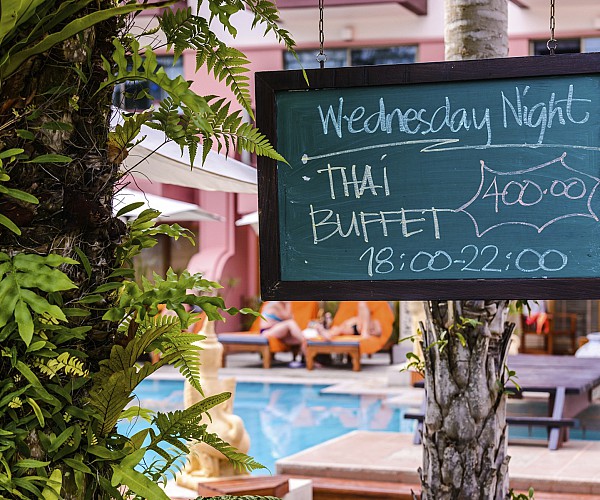 Wednesday Night
THAI
400.00
BUFFET
18:00-22:00